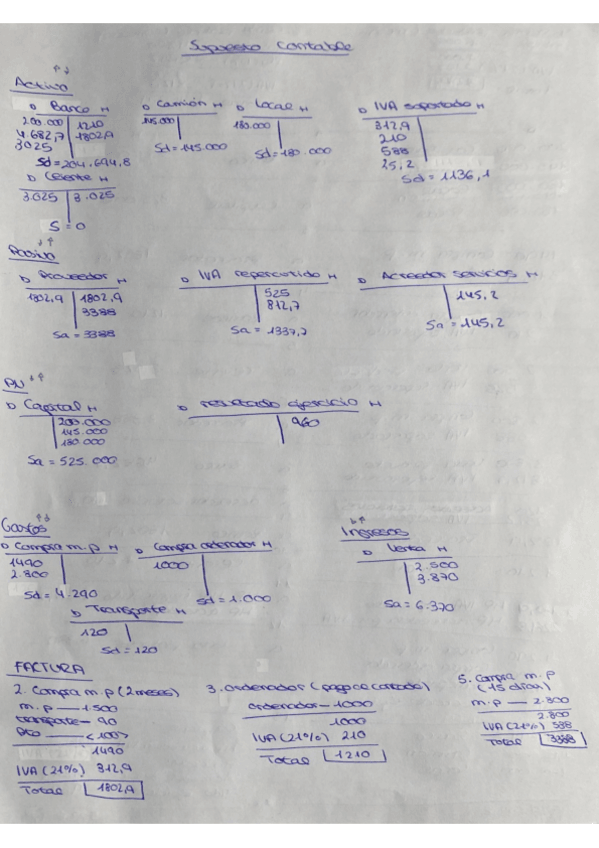 Supuesto contable
Activo ↑↓
D Banco H
200.000 | 1210
4.682,7 | 1802,9
3025
Sd=204.694,8
D Camión H
145.000
Sd=145.000
D Local H
180.000
Sd=180.000
D IVA soportado H
312,9
210
588
25,2
Sd=1136,1
D Cliente H
3.025 | 3.025
S=0
Pasivo ↓↑
D Proveedor H
1802,9 | 1802,9
3388
Sa=3388
D IVA repercutido H
525
812,7
Sa=1337,7
D Acreedor servicios H
145,2
Sa=145,2
PN ↓↑
D Capital H
200.000
145.000
180.000
Sa=525.000
D resultado ejercicio H
960
Gastos ↑↓
D Compra m.p H
1490
2.800
Sd=4.290
D Compra ordenador H
1000
Sd=1.000
D Transporte H
120
Sd=120
Ingresos ↓↑
D Venta H
2.500
3.870
Sa=6.370
FACTURA
2. Compra m.p (2 meses)
m.p — 1500
transporte — 90
Dto — <100>
1490
IVA (21%) 312,9
Total 1802,9
3. ordenador (pago de contado)
ordenador — 1000
1000
IVA (21%) 210
Total 1210
5. Compra m.p
(15 días)
m.p — 2.800
2.800
IVA (21%) 588
Total 3388